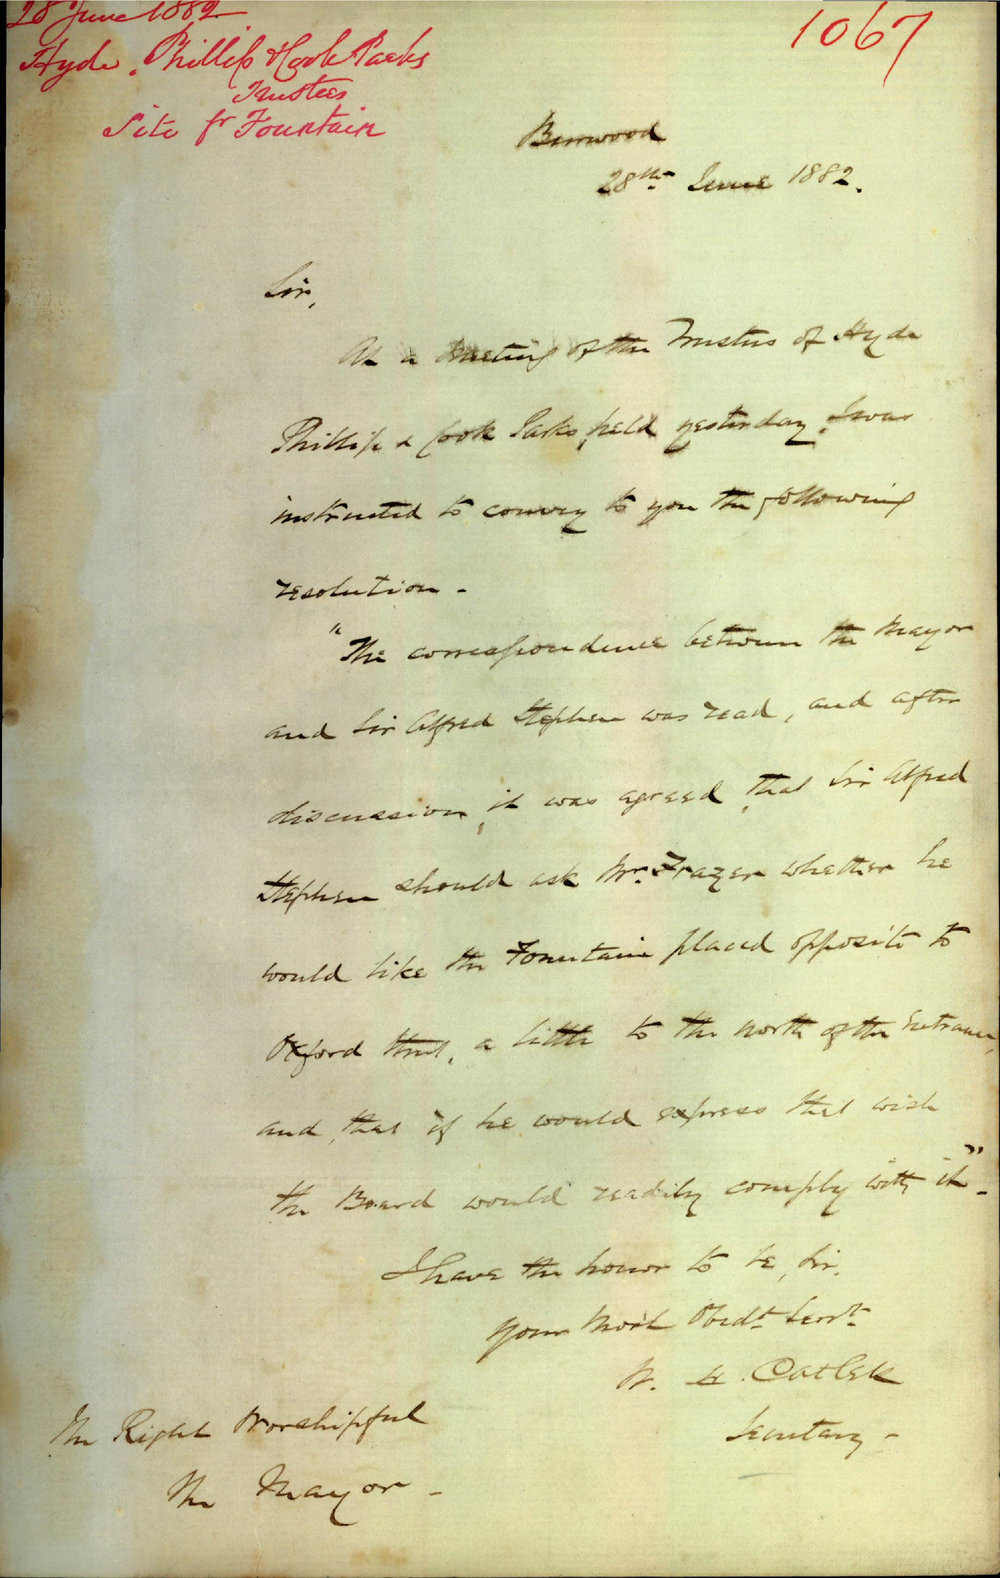 28 June 1882
1067
Hyde, Phillip & Cook Parks
Trustees
Site fr Fountain
Burwood
28th June 1882.
Sir,
At a Meeting of the Trustees of Hyde
Phillip & Cook Parks, held yesterday, I was
instructed to convey to you the following
resolution -
"The correspondence between the Mayor
and Sir Alfred Stephen was read, and after
discussion, it was agreed, that Sir Alfred
Stephen should ask Mr. Frazer whether he
would like the Fountain placed opposite to
Oxford Street, a little to the north of the Entrance,
and, that if he would express that wish
the Board would readily comply with it" -
I have the honor to be, Sir,
Your Most Obedt Servt
W. H. Catlett
Secretary -
The Right Worshipful
The Mayor -